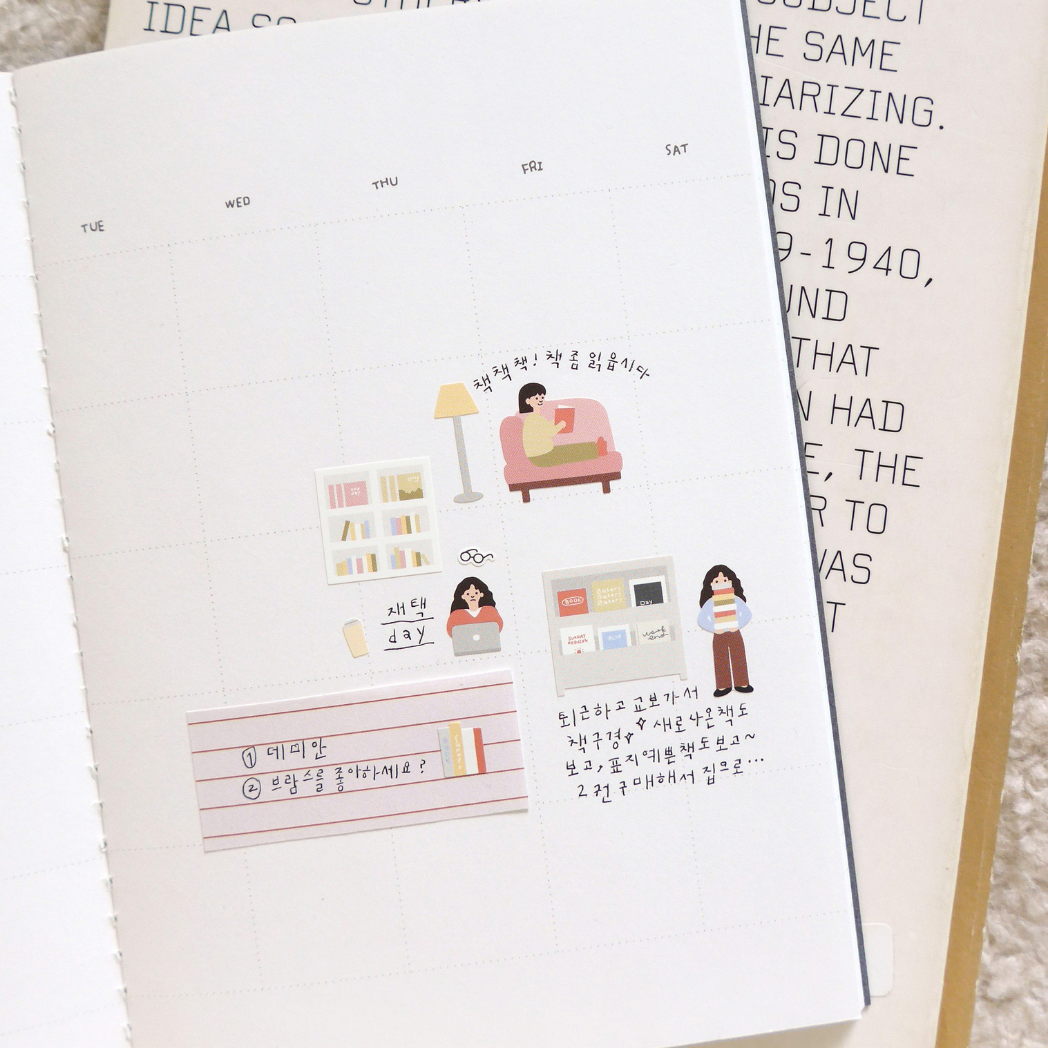 IDEA SO
SUBJECT
HE SAME
IARIZING.
IS DONE
DS IN
9-1940,
UND
THAT
N HAD
E, THE
R TO
WAS
T
TUE
WED
THU
FRI
SAT
책책책! 책 좀 읽읍시다
재택
day
BOOK
Day
week
end
퇴근하고 교보가서
책구경 새로나온책도
보고, 표지예쁜책도보고~
2권구매해서 집으로...
① 데미안
② 브람스를 좋아하세요?